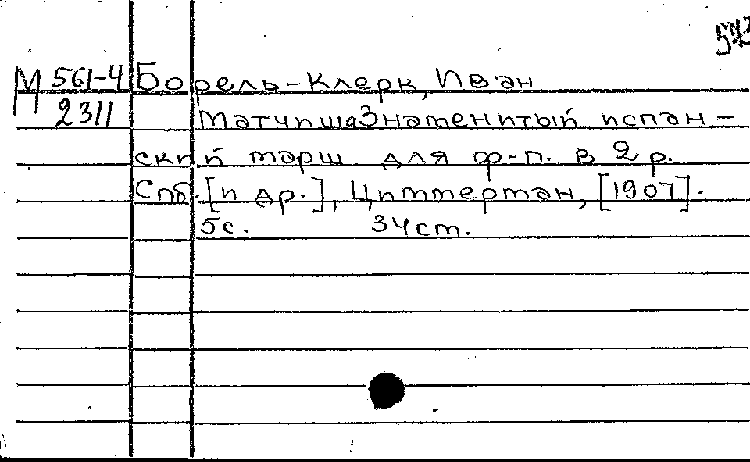 М 561-4 Борель-Клерк, Иван
2311 Матчиша Знаменитый испан-
ский марш для ф-п. в 2 р.
Спб. [и др.], Циммерман, [1907].
5с. 34см.